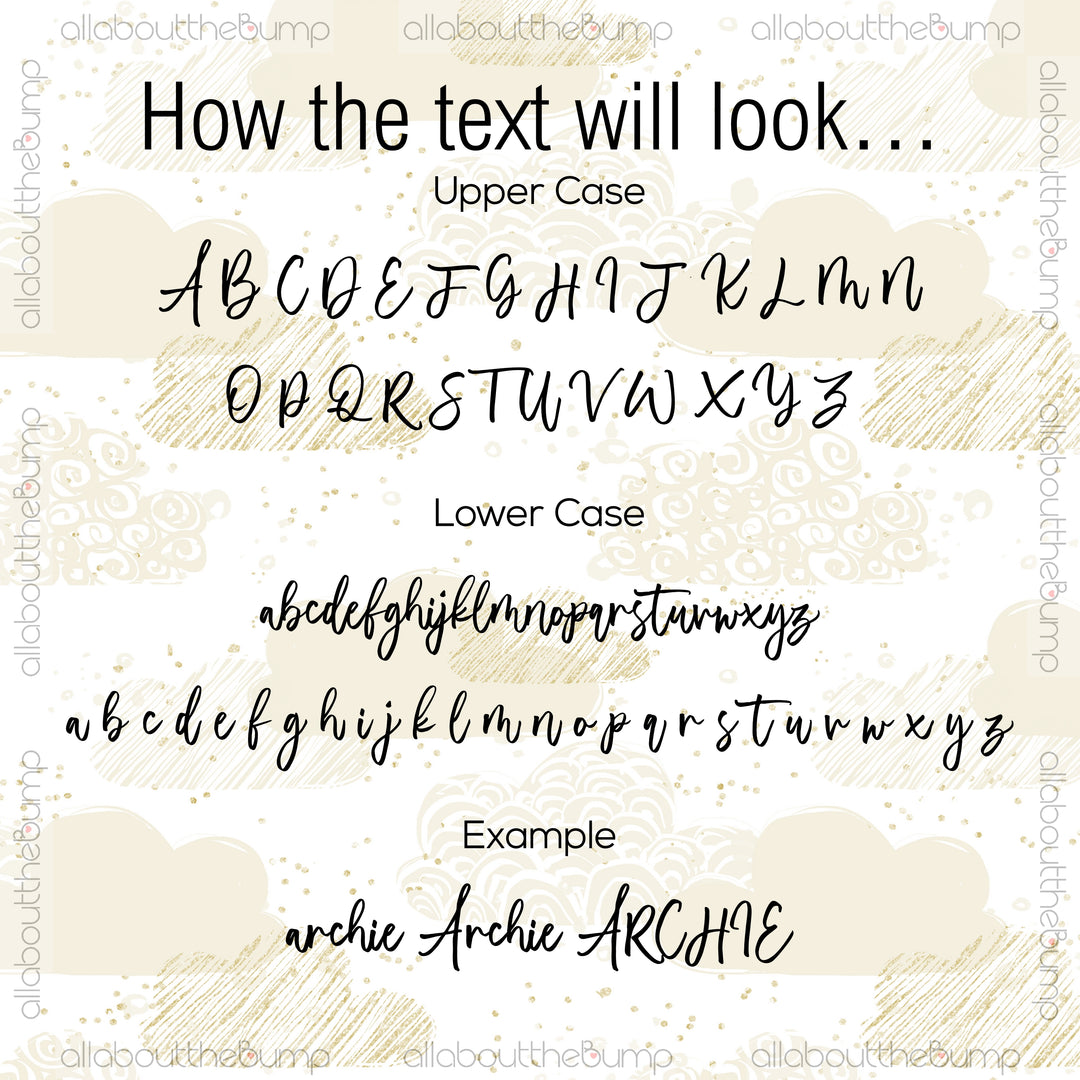 allabouttheBump allabouttheBump allabouttheBump
allabouttheBump
allabouttheBump
How the text will look...
Upper Case
A B C D E F G H I J K L M N
O P Q R S T U V W X Y Z
allabouttheBump
allabouttheBump
Lower Case
abcdefghijklmnopqrstuvwxyz
a b c d e f g h i j k l m n o p q r s t u v w x y z
allabouttheBump
allabouttheBump
Example
archie Archie ARCHIE
allabouttheBump allabouttheBump allabouttheBump